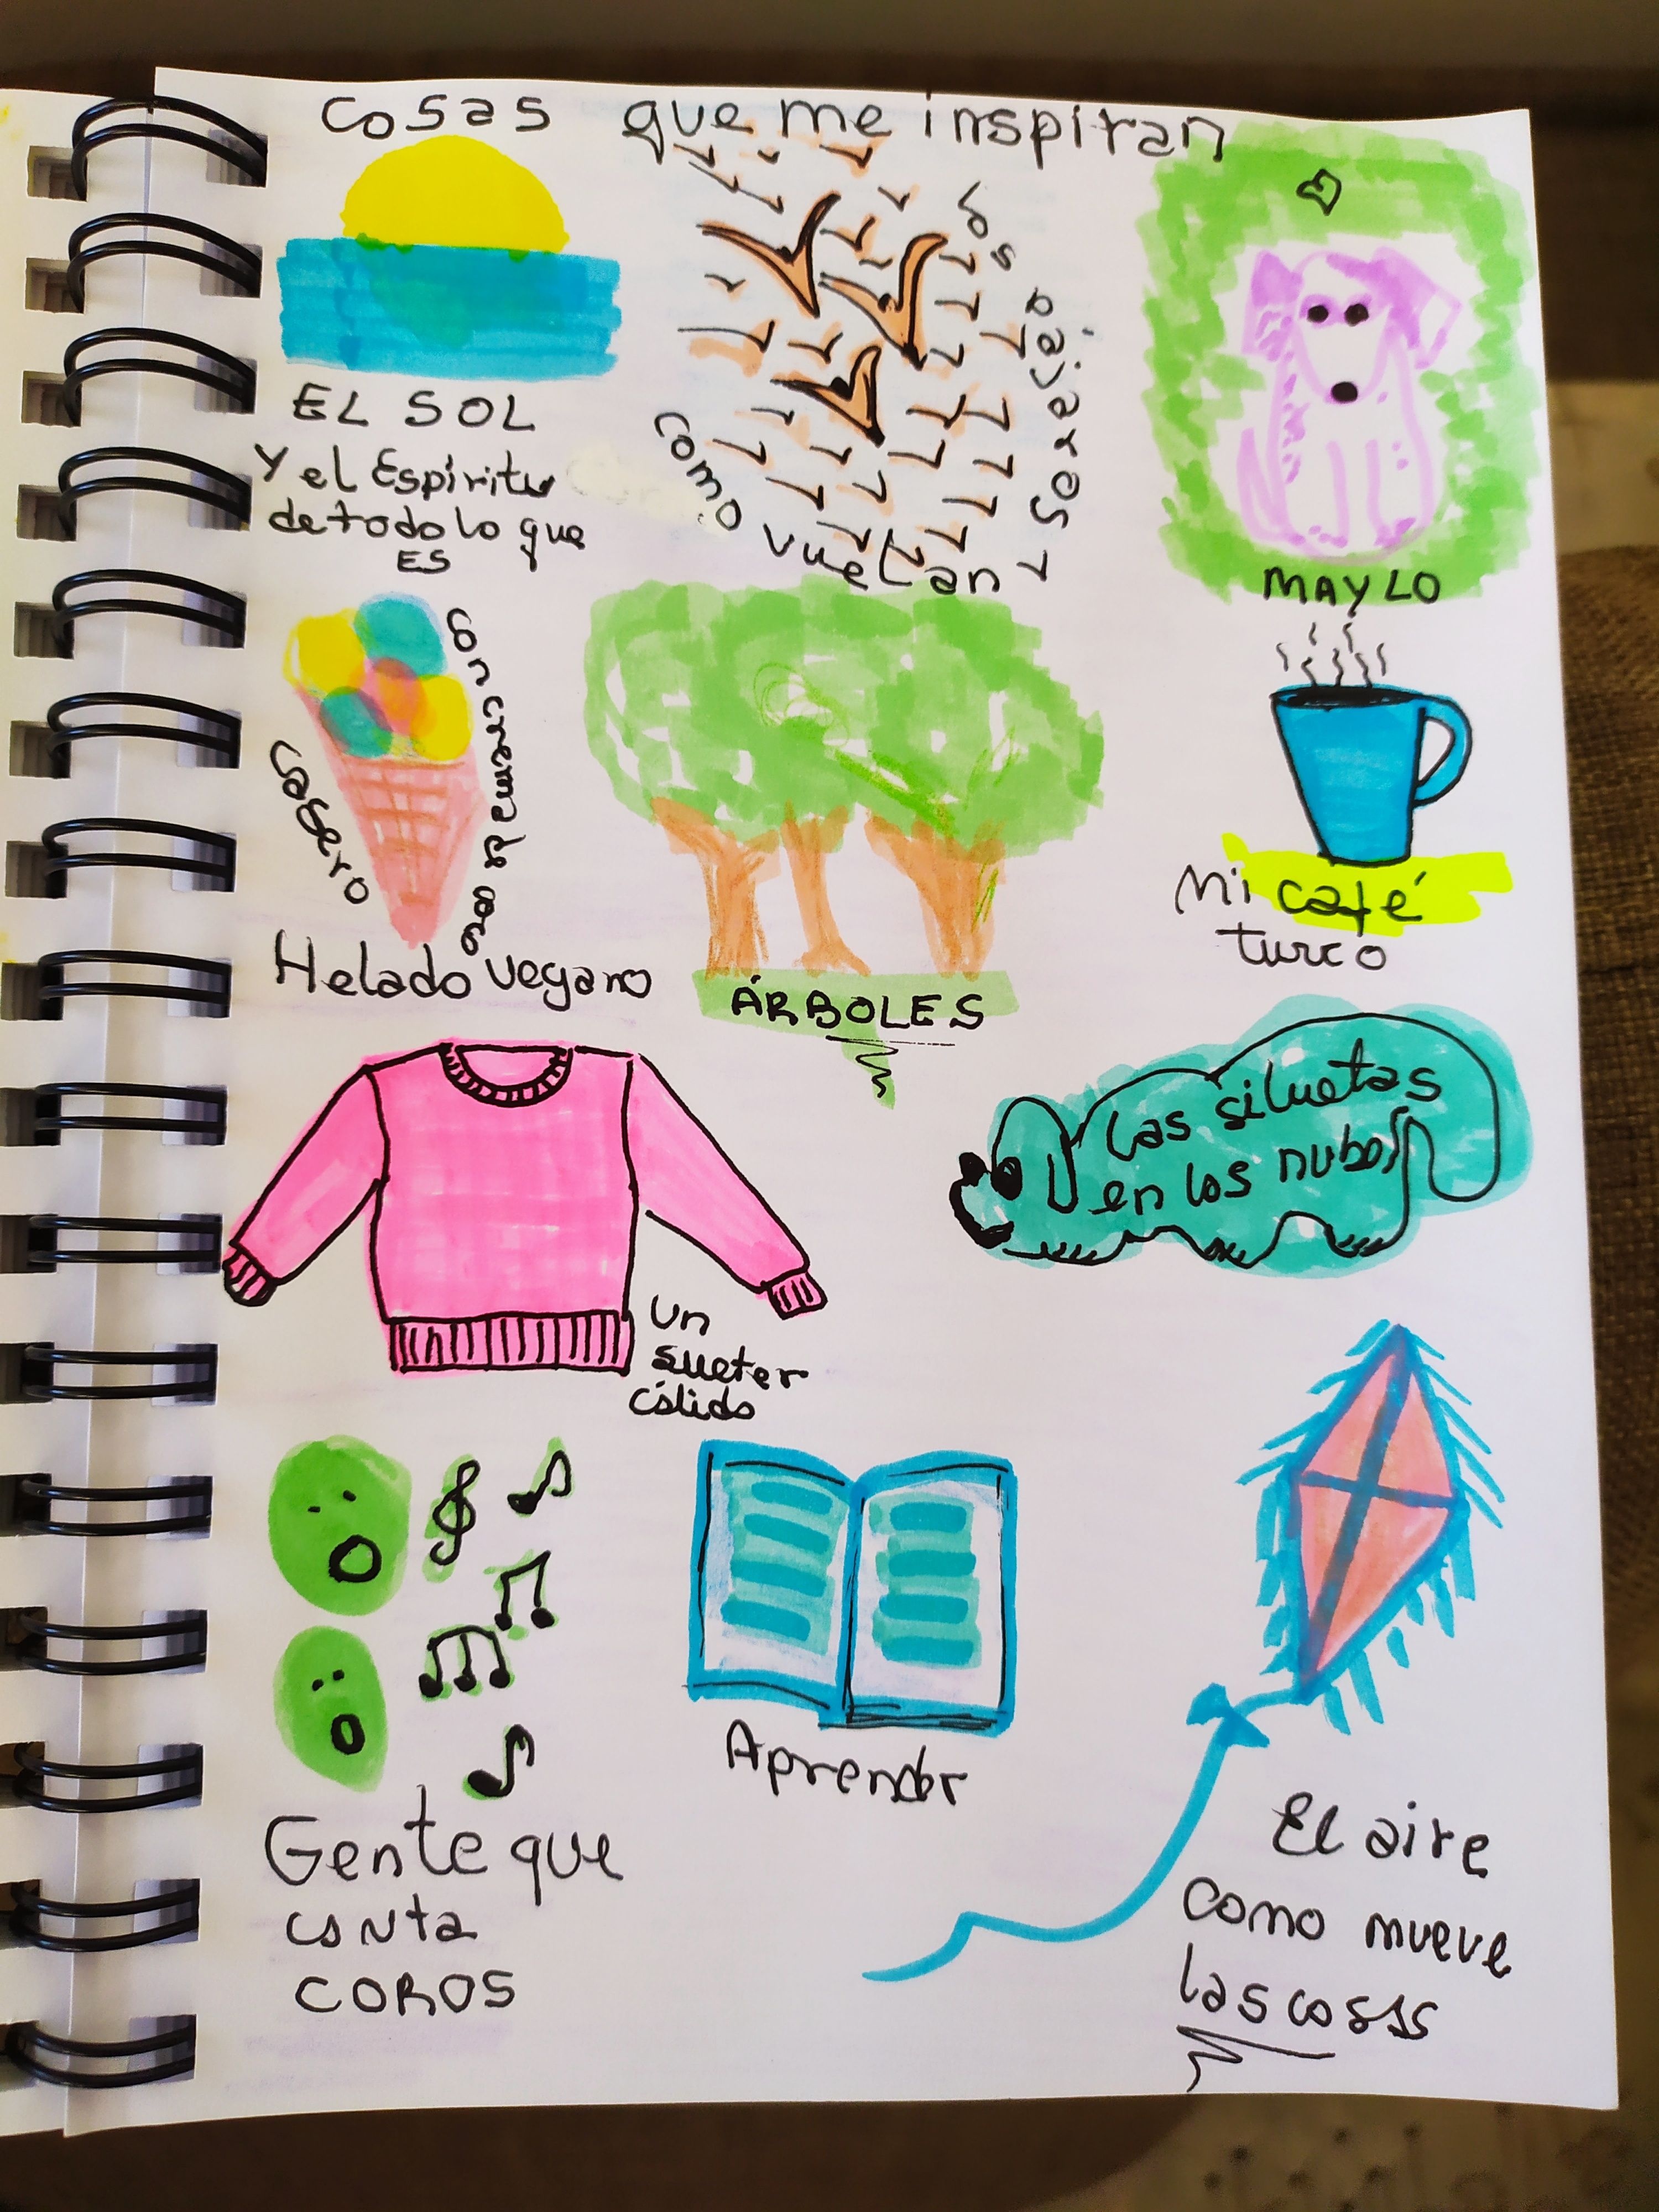 cosas que me inspiran
EL SOL
Y el Espíritu
de todo lo que
ES
los pájaros y
como vuelan
MAYLO
Casero
con crema de coco
Helado vegano
ÁRBOLES
Mi café
turco
Las siluetas
en las nubes
un
sueter
cálido
Gente que
canta
COROS
Aprender
El aire
como mueve
las cosas